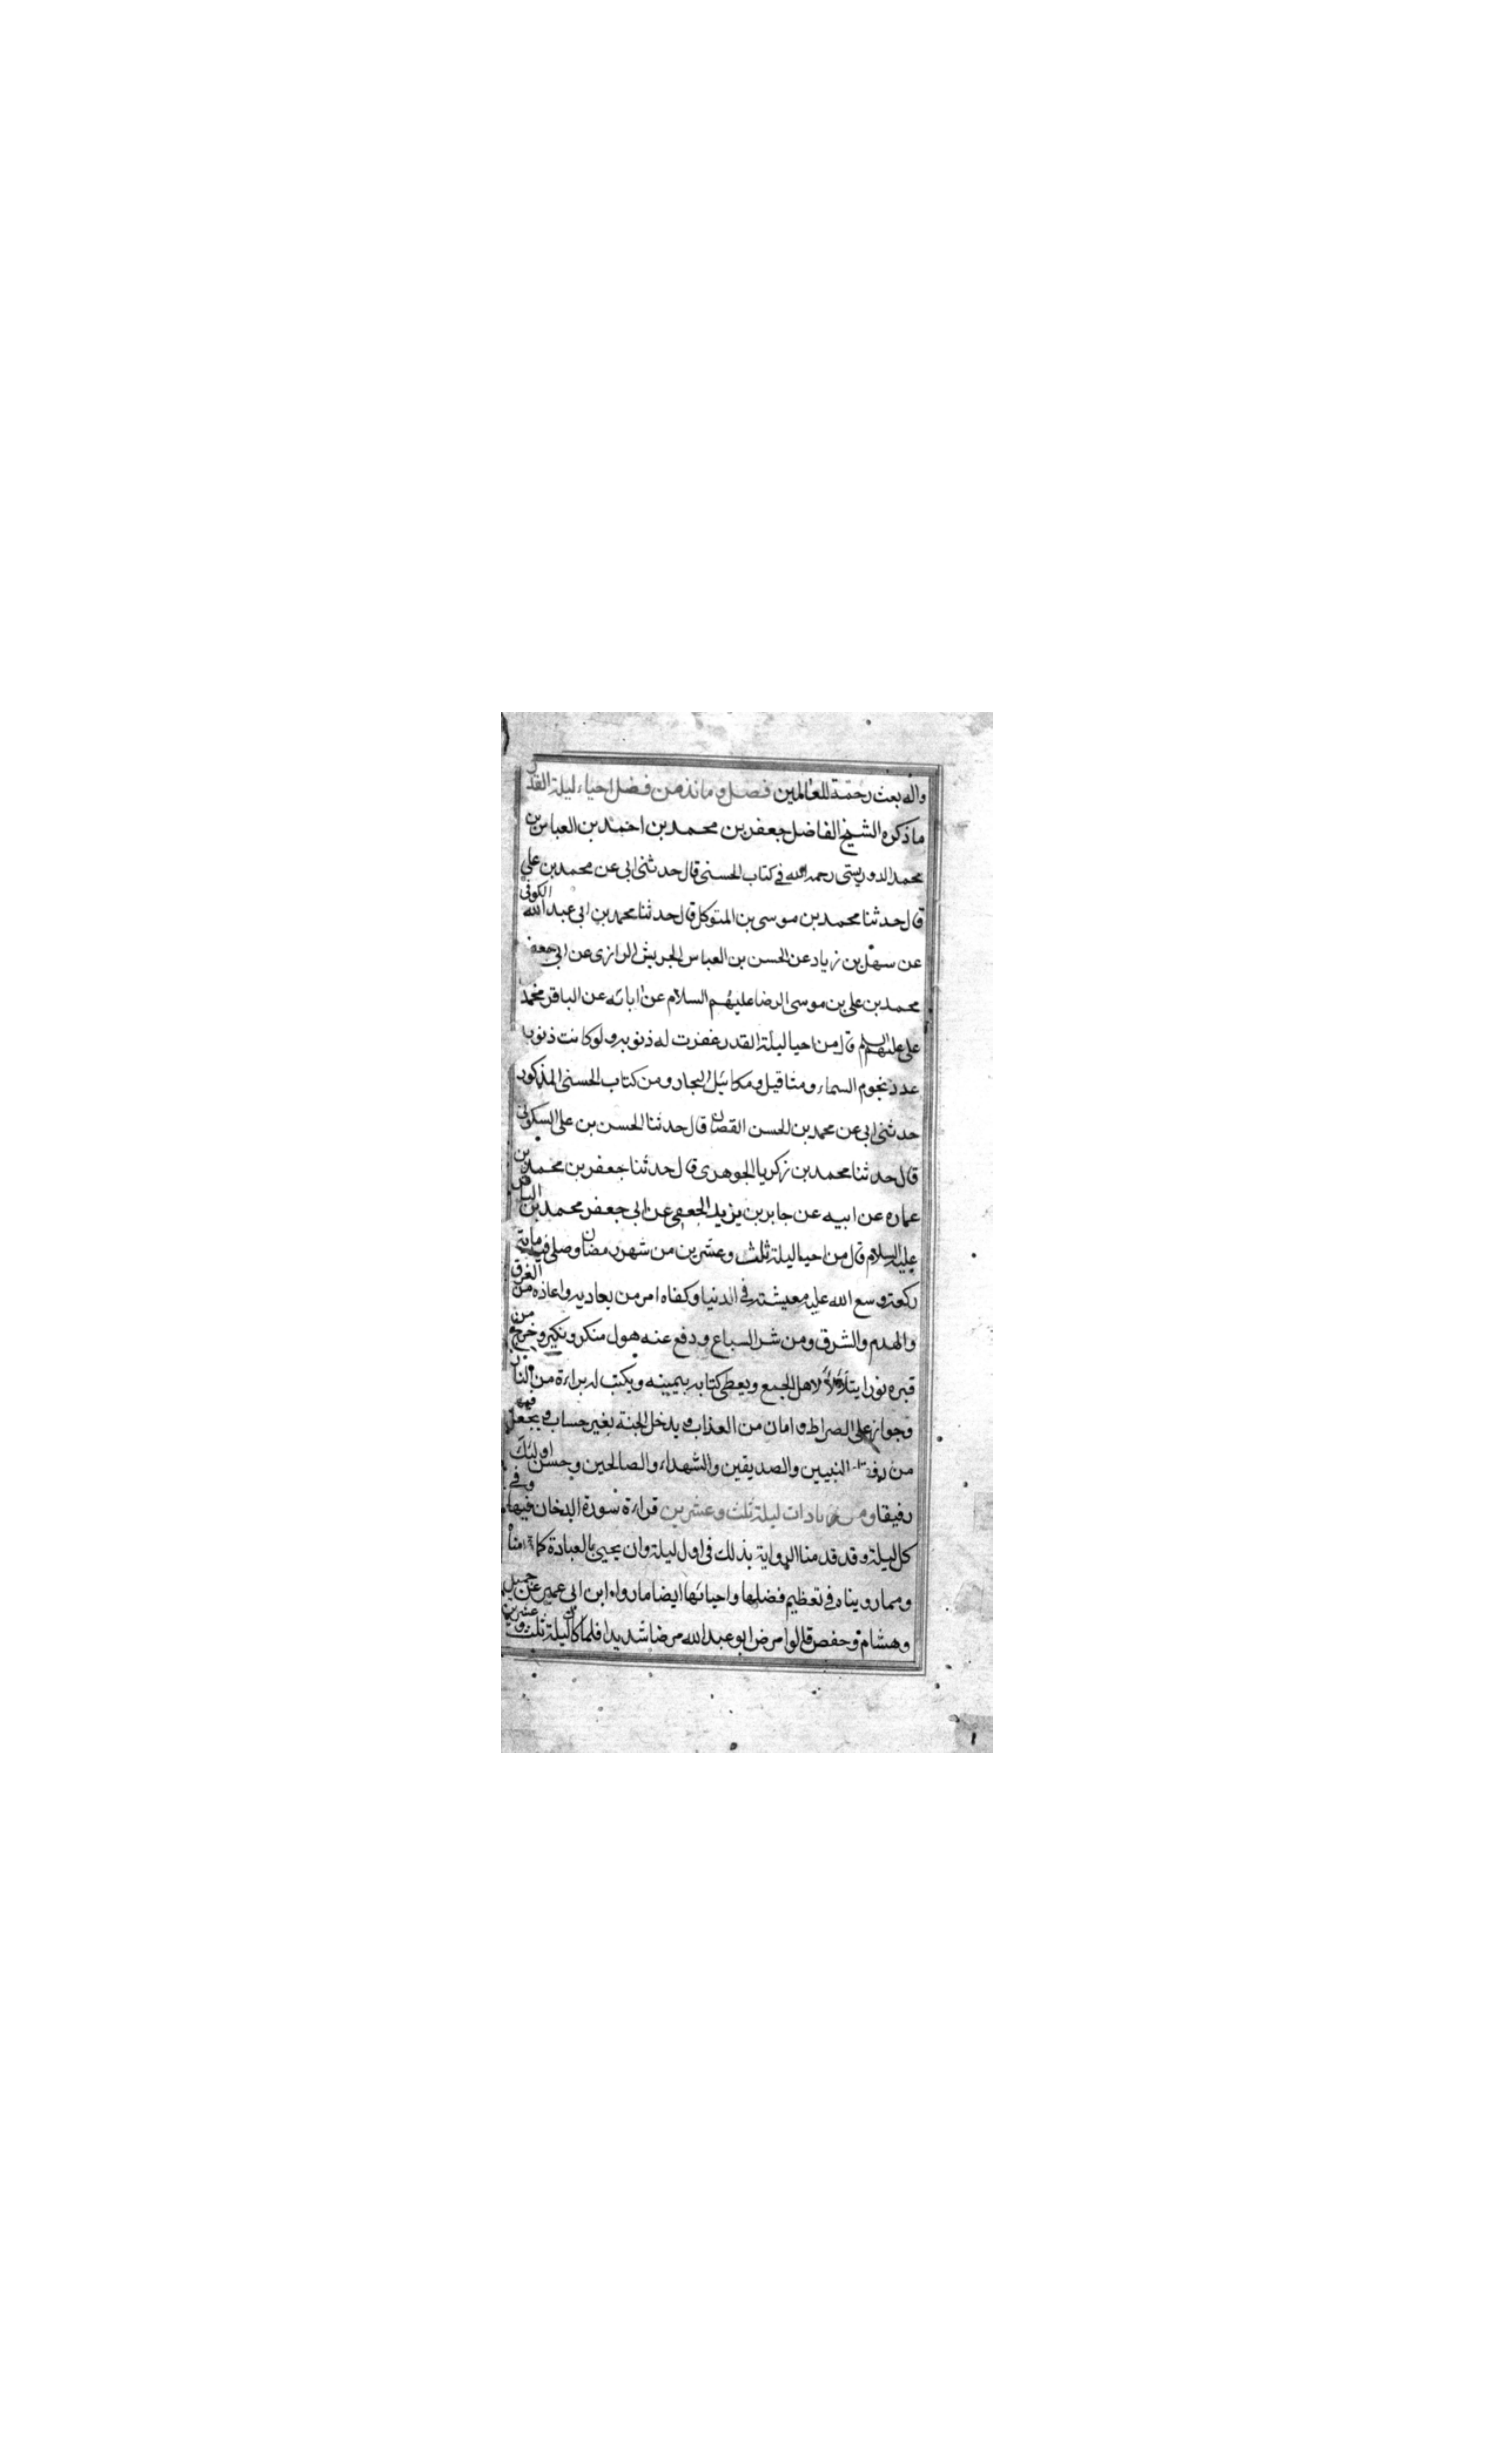 واله بعث رحمة للعالمين فصل ومانذ من فضل احياء ليلة القدر
ما ذكره الشيخ الفاضل جعفر بن محمد بن احمد بن العباس بن
محمد الدوريستى رحمه الله في كتاب الحسنى قال حدثنى ابى عن محمد بن على
قال حدثنا محمد بن موسى بن المتوكل قال حدثنا محمد بن ابى عبد الله الكوفى
عن سهل بن زياد عن الحسن بن العباس الجريش الرازى عن ابى جعفر
محمد بن على بن موسى الرضا عليهم السلام عن ابائه عن الباقر محمد
على عليهم السلم قال من احيا ليلة القدر غفرت له ذنوبه ولو كانت ذنوبه
عدد نجوم السماء ومثاقيل ومكائيل البحار ومن كتاب الحسنى المذكور
حدثنى ابى عن محمد بن الحسن القصان قال حدثنا الحسن بن على السكونى
قال حدثنا محمد بن زكريا الجوهرى قال حدثنا جعفر بن محمد بن
عماره عن ابيه عن جابر بن يزيد الجعفى عن ابى جعفر محمد بن الباقر
عليه السلام قال من احيا ليلة ثلث وعشرين من شهر رمضان وصلى فيه مايتى
ركعة وسع الله عليه معيشته في الدنيا وكفاه امر من يعاديه واعاذه من الغرق
والهدم والشرق ومن شر السباع ودفع عنه هول منكر ونكير وخرج من
قبره نورا يتلألأ لاهل الجمع ويعطى كتابه بيمينه ويكتب له براءة من النار
وجواز على الصراط وامان من العذاب ويدخل الجنة بغير حساب ويجعل فيها
من رفقاء النبيين والصديقين والشهداء والصالحين وحسن اولئك
رفيقا ومن زيادات ليلة ثلث وعشرين قراءة سورة الدخان فيها وفي
كل ليلة وقد قدمنا الرواية بذلك في اول ليلة وان يحيى بالعبادة كما قدمناه
ومما رويناه في تعظيم فضلها واحيائها ايضا ما رواه ابن ابى عمير عن جميل
وهشام وحفص قالوا مرض ابو عبد الله مرضا شديدا فلما كان ليلة ثلث وعشرين